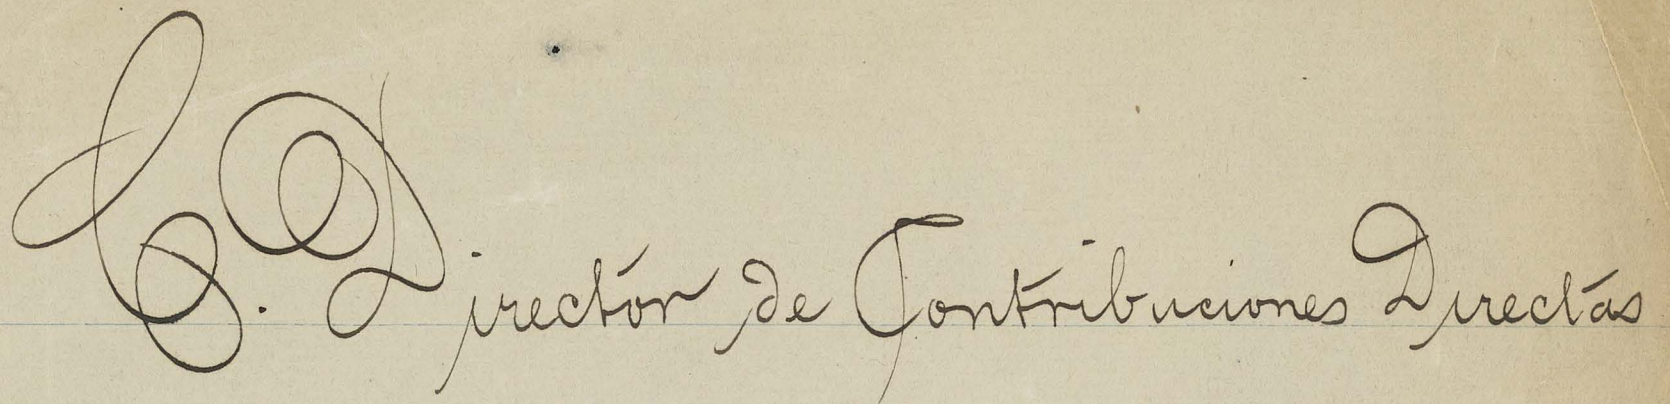 C. Director de Contribuciones Directas